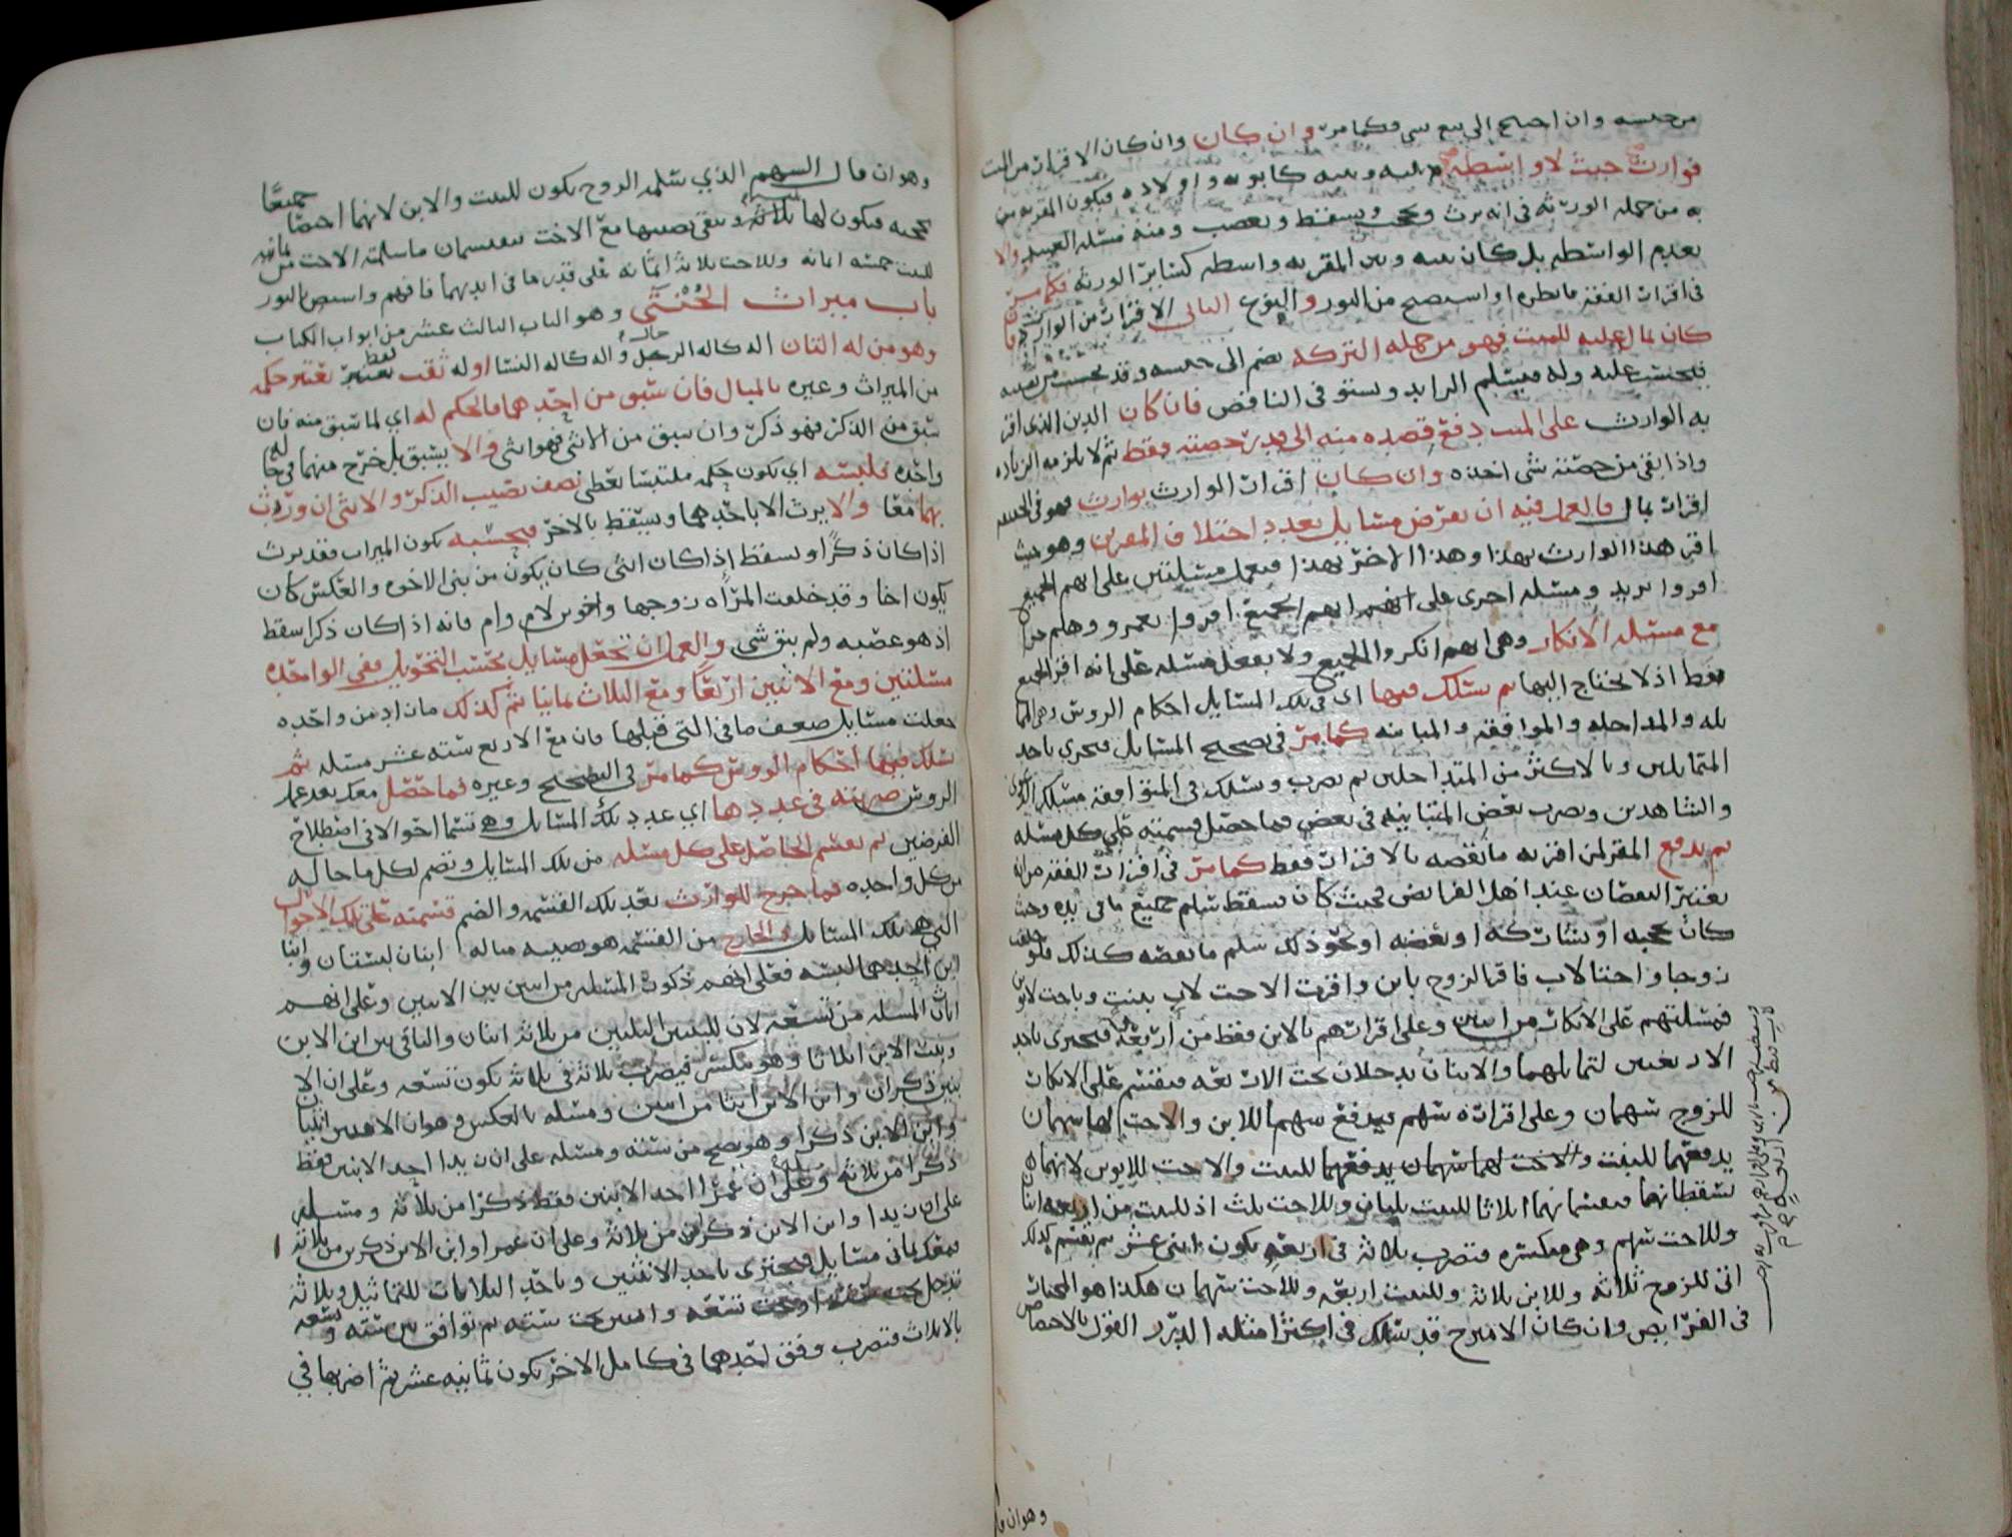 من جنسه وان احتيج الى بيع شي فكما مر وان كان وان كان الاقرار من الميت
فوارث حيث لا واسطة بينه وبينه كابويه واولاده فيكون المقر به من
به من جملة الورثة في انه يرث ويحجب ويسقط ويعصب ومنه مسئلة العبيد والا
يعدم الواسطة بل كان بينه وبين المقر به واسطة كسائر الورثة فكما مر
في اقرار الفقه فانظره او استصح من النور والنوع الثاني الاقرار من الوارث فما
كان بمال عليه للميت فهو من جملة التركة يضم الى جنسه وقد
فيحتسب عليه وله فيسلم الزايد ويستوفي الناقص فان كان الدين الذي اقر
به الوارث على الميت دفع قصده منه الى قدر حصته فقط ثم لا يلزمه الزيادة
واذا بقي من حصته شي اخذه وان كان اقرار الوارث بوارث فهو في الجنس
اقرار بمال فالعمل فيه ان تعرض مسايل بعدد اختلاف المقرين وهو حيث
اقر هذا الوارث بهذا وهذا الاخر بهذا فيعمل مسئلتين على انهم الجميع
اقروا بزيد ومسئلة اخرى على انهم الجميع اقروا بعمرو وهلم جرا
مع مسئلة الانكار وهي انهم انكروا الجميع ولا يفعل مسئلة على انه اقر الجميع
فقط اذ لا يحتاج اليها ثم تسلك فيها اي في تلك المسايل احكام الروس وهي المما
ثلة والمداخلة والموافقة والمباينة كما مر في تصحيح المسايل فتجزي باحد
المتماثلين وبالاكثر من المتداخلين ثم تضرب وتسلك في المتوافقة مسلك
والشاهدين وتضرب بعض المتباينة في بعض فما حصل قسمته على كل مسئلة
ثم يدفع المقر لمن اقر به ما نقصه بالاقرار فقط كما مر في اقرار الفقه من ان
يعتبر النقصان عند اهل الفرايض فحيث كان يسقط سلم جميع ما في يده وحيث
كان يحجبه او يشاركه او يعصبه او نحو ذلك سلم ما نقصه كذلك فلو خلفت
زوجا واختا لاب فاقر الزوج بابن واقرت الاخت لاب ببنت وباخت لابوين
فمسئلتهم على الانكار من اثنين وعلى اقرارهم بالابن فقط من اربعة فيجتزى باحد
الاربعتين لتماثلهما والاثنان يدخلان تحت الاربعة فتقسم على الانكار
للزوج سهمان وعلى اقراره سهم فيدفع سهما للابن والاخت لها سهمان
يدفعهما للبنت والاخت لهما سهمان يدفعهما للبنت والاخت للابوين لانهما
تسقطانها فيقسمانهما اثلاثا للبنت ثلثان وللاخت ثلث اذ للبنت من اربعة اثنان
وللاخت سهم وهي منكسرة فتضرب ثلاثة في اربعة يكون اثنى عشر ثم يقسم كذلك
اتى للزوج ثلاثة وللابن ثلاثة وللبنت اربعة وللاخت سهمان هكذا هو المختار
في الفرايض وان كان الامير ح قد سلك في اكثر امثلة الدرر القول بالاختصاص
وهو ان ما
وهو ان مال السهم الذي سلمه الزوج يكون للبنت والابن لانهما اختصا جميعا
بحجبه فيكون لها بثلاثة ويبقى نصيبها مع الاخت فيقتسمان ما سلمته الاخت من ثمانية
للبنت خمسة اثمانه وللاخت ثلاثة اثمانه على قدر ما في ايديهما فافهم واستصح بالنور
باب ميراث الخنثى وهو الباب الثالث عشر من ابواب الكتاب
وهو من له التان الة كالة الرجال والة كالة النسا او له ثقب فقط يعتبر يعتبر حكمه
من الميراث وغيره بالمبال فان سبق من احدهما فالحكم له اي لما سبق منه فان
سبق من الذكر فهو ذكر وان سبق من الانثى فهو انثى والا يسبق بل خرج منهما في حالة
واحدة فلبسه اي يكون حكمه ملتبسا يعطى نصف نصيب الذكر والانثى ان ورث
بهما معا والا يرث الا باحدهما ويسقط بالاخر فبحسبه يكون الميراث فقد يرث
اذا كان ذكرا ويسقط اذا كان انثى كان يكون من بني الاخوة والعكس كان
يكون اختا وقد خلفت المرأة زوجها واخوين لام وام فانه اذا كان ذكرا سقط
اذ هو عصبه ولم يبق شي والعمل ان تجعل مسايل بحسب التحويل ففي الواحدة
مسئلتين ومع الاثنين اربعا ومع الثلاث ثمانيا ثم كذلك فان زاد من واحدة
جعلت مسايل ضعف ما في التي قبلها فان مع الاربع ستة عشر مسئلة ثم
تسلك فيها احكام الروس كما مر في التصحيح وغيره فما حصل معك بعد عمل
الروس ضربته في عددها اي عدد تلك المسايل وهي تسما احوالا في اصطلاح
الفرضيين ثم تقسم الحاصل على كل مسئلة من تلك المسايل وتضم لكل ما حاله
من كل واحدة فما خرج للوارث بعد تلك القسمة والضم قسمته على تلك الاحوال
التي هي تلك المسايل والخارج من القسمة هو نصيبه مثاله ابنان لبستان وابنا
ابن احدهما لبسة فعلى انهم ذكور المسئلة من اثنين بين الابنين وعلى انهم
اناث المسئلة من تسعة لان للبنتين الثلثين من ثلاثة اثنان والباقي بين ابن الابن
وبنت الابن اثلاثا وهو منكسر فيضرب ثلاثة في ثلاثة يكون تسعة وعلى ان الا
بنين ذكران وابن الابن انثى من اثنين ومسئلة بالعكس وهو ان الابنين انثيان
وابن الابن ذكرا وهو يصح من ستة ومسئلة على ان زيدا احد الابنين فقط
ذكرا من ثلاثة وعلى ان عمرا احد الابنين فقط ذكرا من ثلاثة ومسئلة
على ان زيدا وابن الابن ذكران من ثلاثة وعلى ان عمرا وابن الابن ذكرين من ثلاثة
فمعك ثماني مسايل فتجتزى باحد الاثنين وباحد الثلاثات للتماثل وثلاثة
تدخل تحت تسعة واثنين تحت ستة ثم توافق بين ستة وتسعة
بالاثلاث فتضرب وفق احدهما في كامل الاخر يكون ثمانية عشر ثم اضربها في